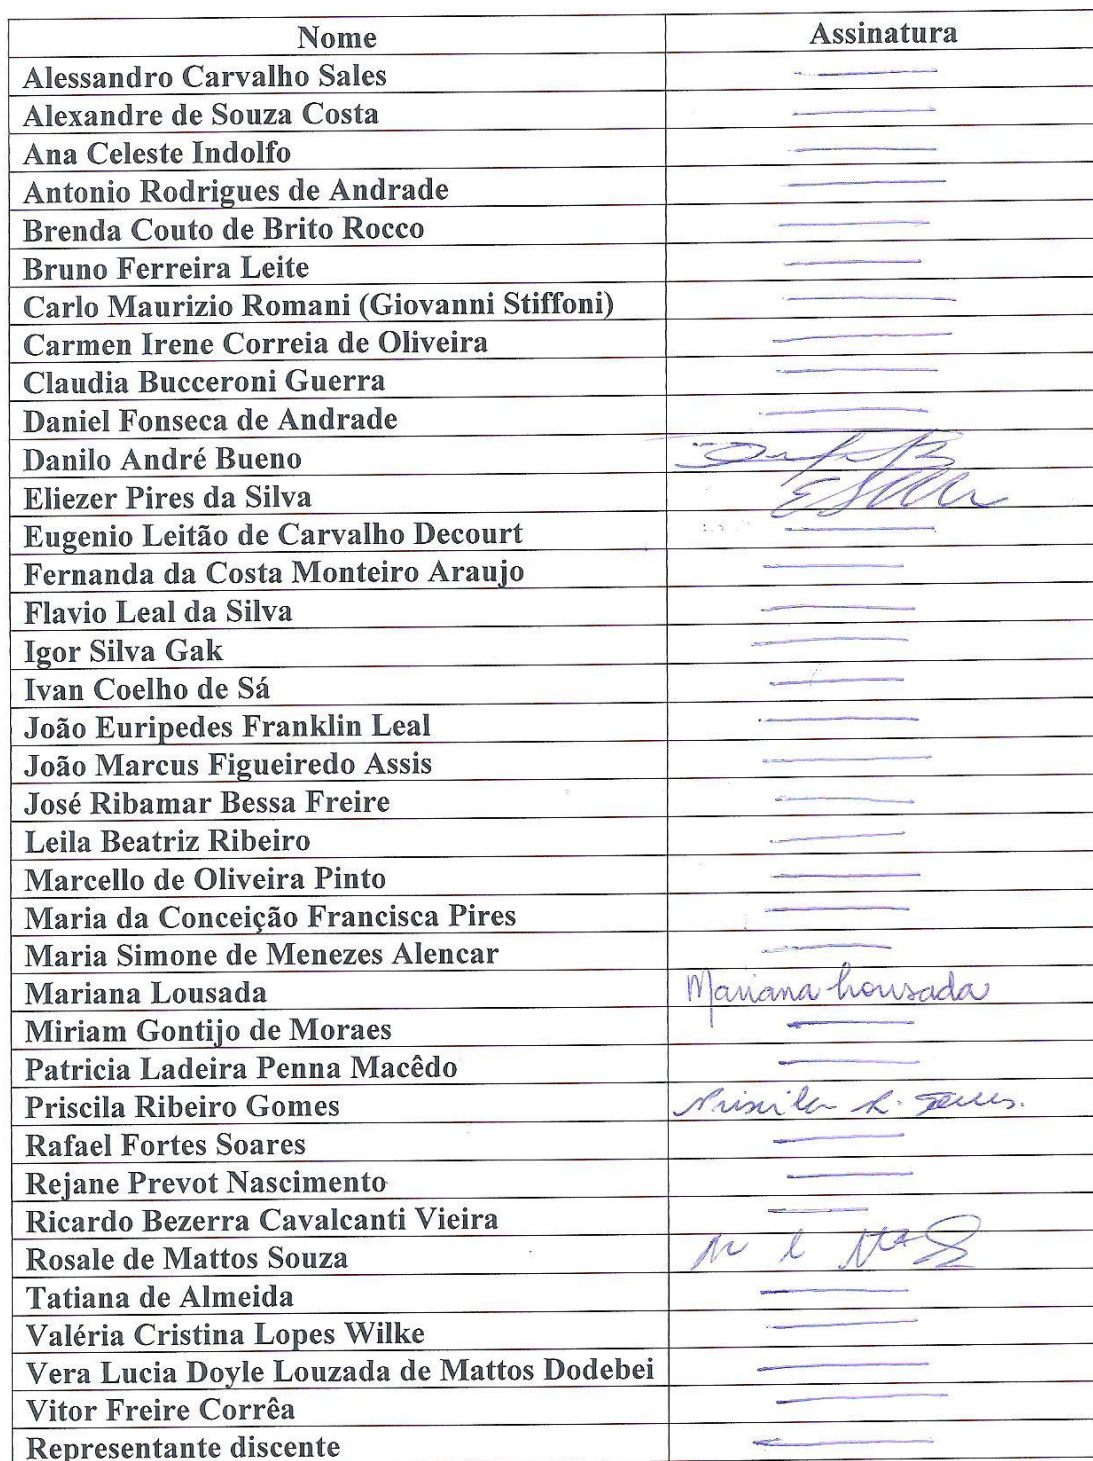 Nome Assinatura
Alessandro Carvalho Sales
Alexandre de Souza Costa
Ana Celeste Indolfo
Antonio Rodrigues de Andrade
Brenda Couto de Brito Rocco
Bruno Ferreira Leite
Carlo Maurizio Romani (Giovanni Stiffoni)
Carmen Irene Correia de Oliveira
Claudia Bucceroni Guerra
Daniel Fonseca de Andrade
Danilo André Bueno
Eliezer Pires da Silva
Eugenio Leitão de Carvalho Decourt
Fernanda da Costa Monteiro Araujo
Flavio Leal da Silva
Igor Silva Gak
Ivan Coelho de Sá
João Euripedes Franklin Leal
João Marcus Figueiredo Assis
José Ribamar Bessa Freire
Leila Beatriz Ribeiro
Marcello de Oliveira Pinto
Maria da Conceição Francisca Pires
Maria Simone de Menezes Alencar
Mariana Lousada Mariana Lousada
Miriam Gontijo de Moraes
Patricia Ladeira Penna Macêdo
Priscila Ribeiro Gomes Priscila R. Gomes.
Rafael Fortes Soares
Rejane Prevot Nascimento
Ricardo Bezerra Cavalcanti Vieira
Rosale de Mattos Souza
Tatiana de Almeida
Valéria Cristina Lopes Wilke
Vera Lucia Doyle Louzada de Mattos Dodebei
Vitor Freire Corrêa
Representante discente